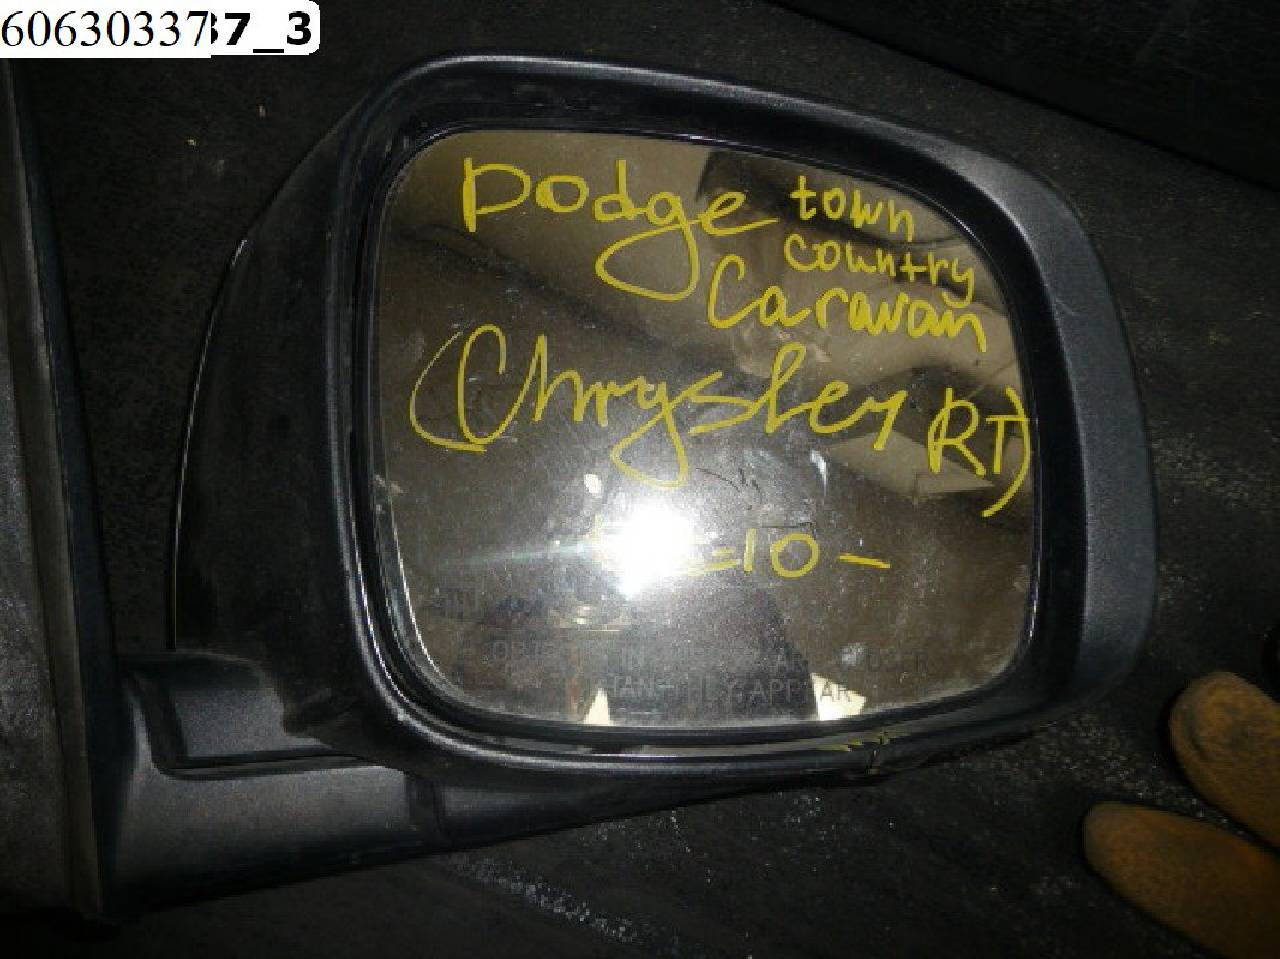 60630337
37_3
Dodge town
country
Caravan
(Chrysler RT)
=10-
OBJECTS IN MIRROR ARE CLOSER
THAN THEY APPEAR